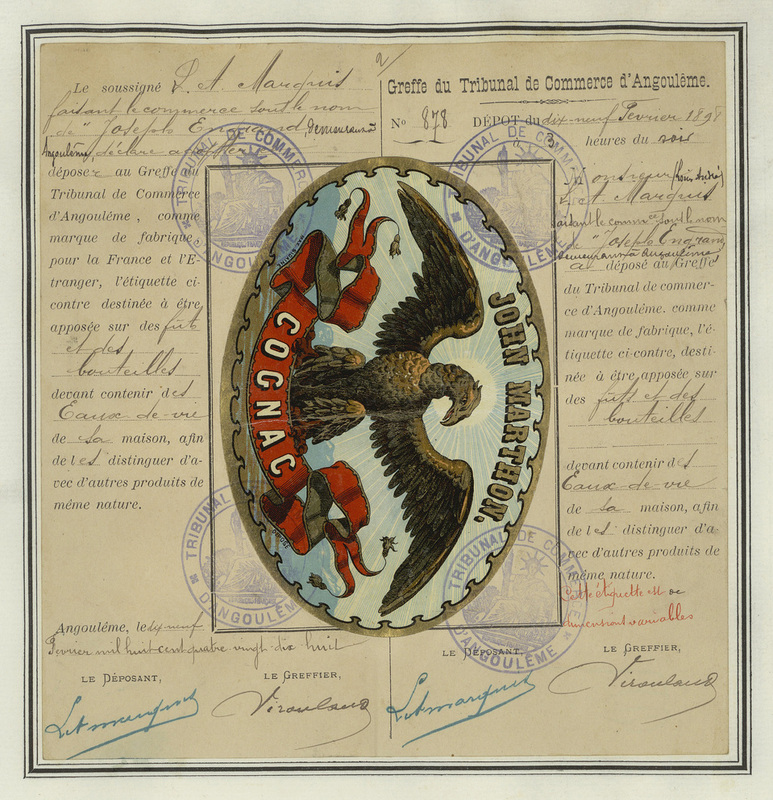 2
Le soussigné L. A. Marquis
faisant le commerce sous le nom
de "Joseph Engrand, demeurant à
Angoulême, déclare avoir
déposer au Greffe
Tribunal de Commerce
d'Angoulême, comme
marque de fabrique,
pour la France et l'É-
tranger, l'étiquette ci-
contre destinée à être
apposée sur des fûts
et des
bouteilles
devant contenir des
Eaux-de-vie
de sa maison, afin
de les distinguer d'a-
vec d'autres produits de
même nature.
Angoulême, le dix-neuf
Février mil huit cent quatre vingt dix huit
LE DÉPOSANT,
LE GREFFIER,
L. A. Marquis
COGNAC
JOHN MARTHON.
Greffe du Tribunal de Commerce d'Angoulême.
No 878 DÉPOT du dix-neuf Février 1898
à 3 heures du soir
Monsieur (Louis André)
L. A. Marquis
faisant le commce sous le nom
de "Joseph Engrand
demeurant à Angoulême
a déposé au Greffe
du Tribunal de commer-
ce d'Angoulême. comme
marque de fabrique, l'é-
tiquette ci-contre, desti-
née à être apposée sur
des fûts et des
bouteilles
devant contenir des
Eaux-de-vie
de sa maison, afin
de les distinguer d'a-
vec d'autres produits de
même nature.
Cette étiquette est de
dimensions variables
LE DÉPOSANT,
LE GREFFIER,
L. A. Marquis
TRIBUNAL DE COMMERCE
D'ANGOULÊME
TRIBUNAL DE COMMERCE
D'ANGOULÊME
TRIBUNAL
D'ANGOULÊME
TRIBUNAL DE COMMERCE
D'ANGOULÊME